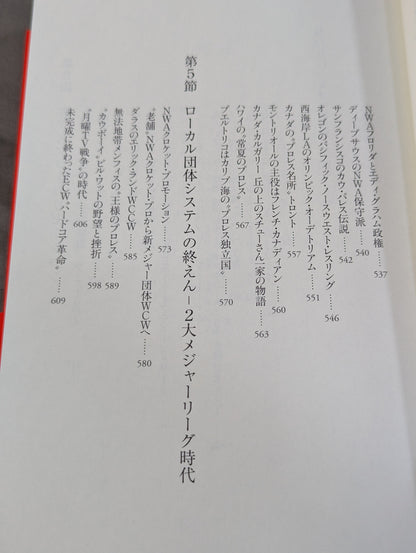 NWAフロリダとエディ・グラハム政権……537
ディープサウスのNWA保守派……540
サンフランシスコのカウ・パレス伝説……542
オレゴンのパシフィック・ノースウエスト・レスリング……546
西海岸LAのオリンピック・オーデトリアム……551
カナダの“プロレス名所”トロント……557
モントリオールの主役はフレンチ・カナディアン……560
カナダ・カルガリー 丘の上のスチューさん一家の物語……563
ハワイの“常夏のプロレス”……567
プエルトリコはカリブ海の“プロレス独立国”……570
第5節 ローカル団体システムの終えん－2大メジャーリーグ時代
NWAクロケット・プロモーション……573
“老舗”NWAクロケット・プロから新メジャー団体WCWへ……580
ダラスのエリック・ランドWCCW……585
無法地帯メンフィスの“王様のプロレス”……589
“カウボーイ”ビル・ワットの野望と挫折……598
“月曜TV戦争”の時代……606
未完成に終わったECW“ハードコア革命”……609